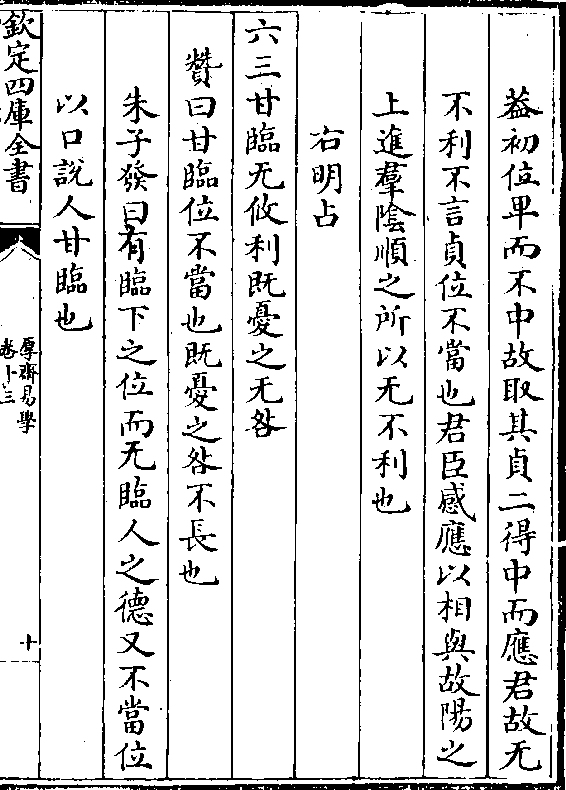 葢初位卑而不中故取其貞二得中而應君故无
不利不言貞位不當也君臣感應以相與故陽之
上進羣陰順之所以无不利也
右明占
六三甘臨无攸利既憂之无咎
贊曰甘臨位不當也既憂之咎不長也
朱子發曰有臨下之位而无臨人之德又不當位
以口說人甘臨也
欽定四庫全書
厚齋易學
卷十三
十